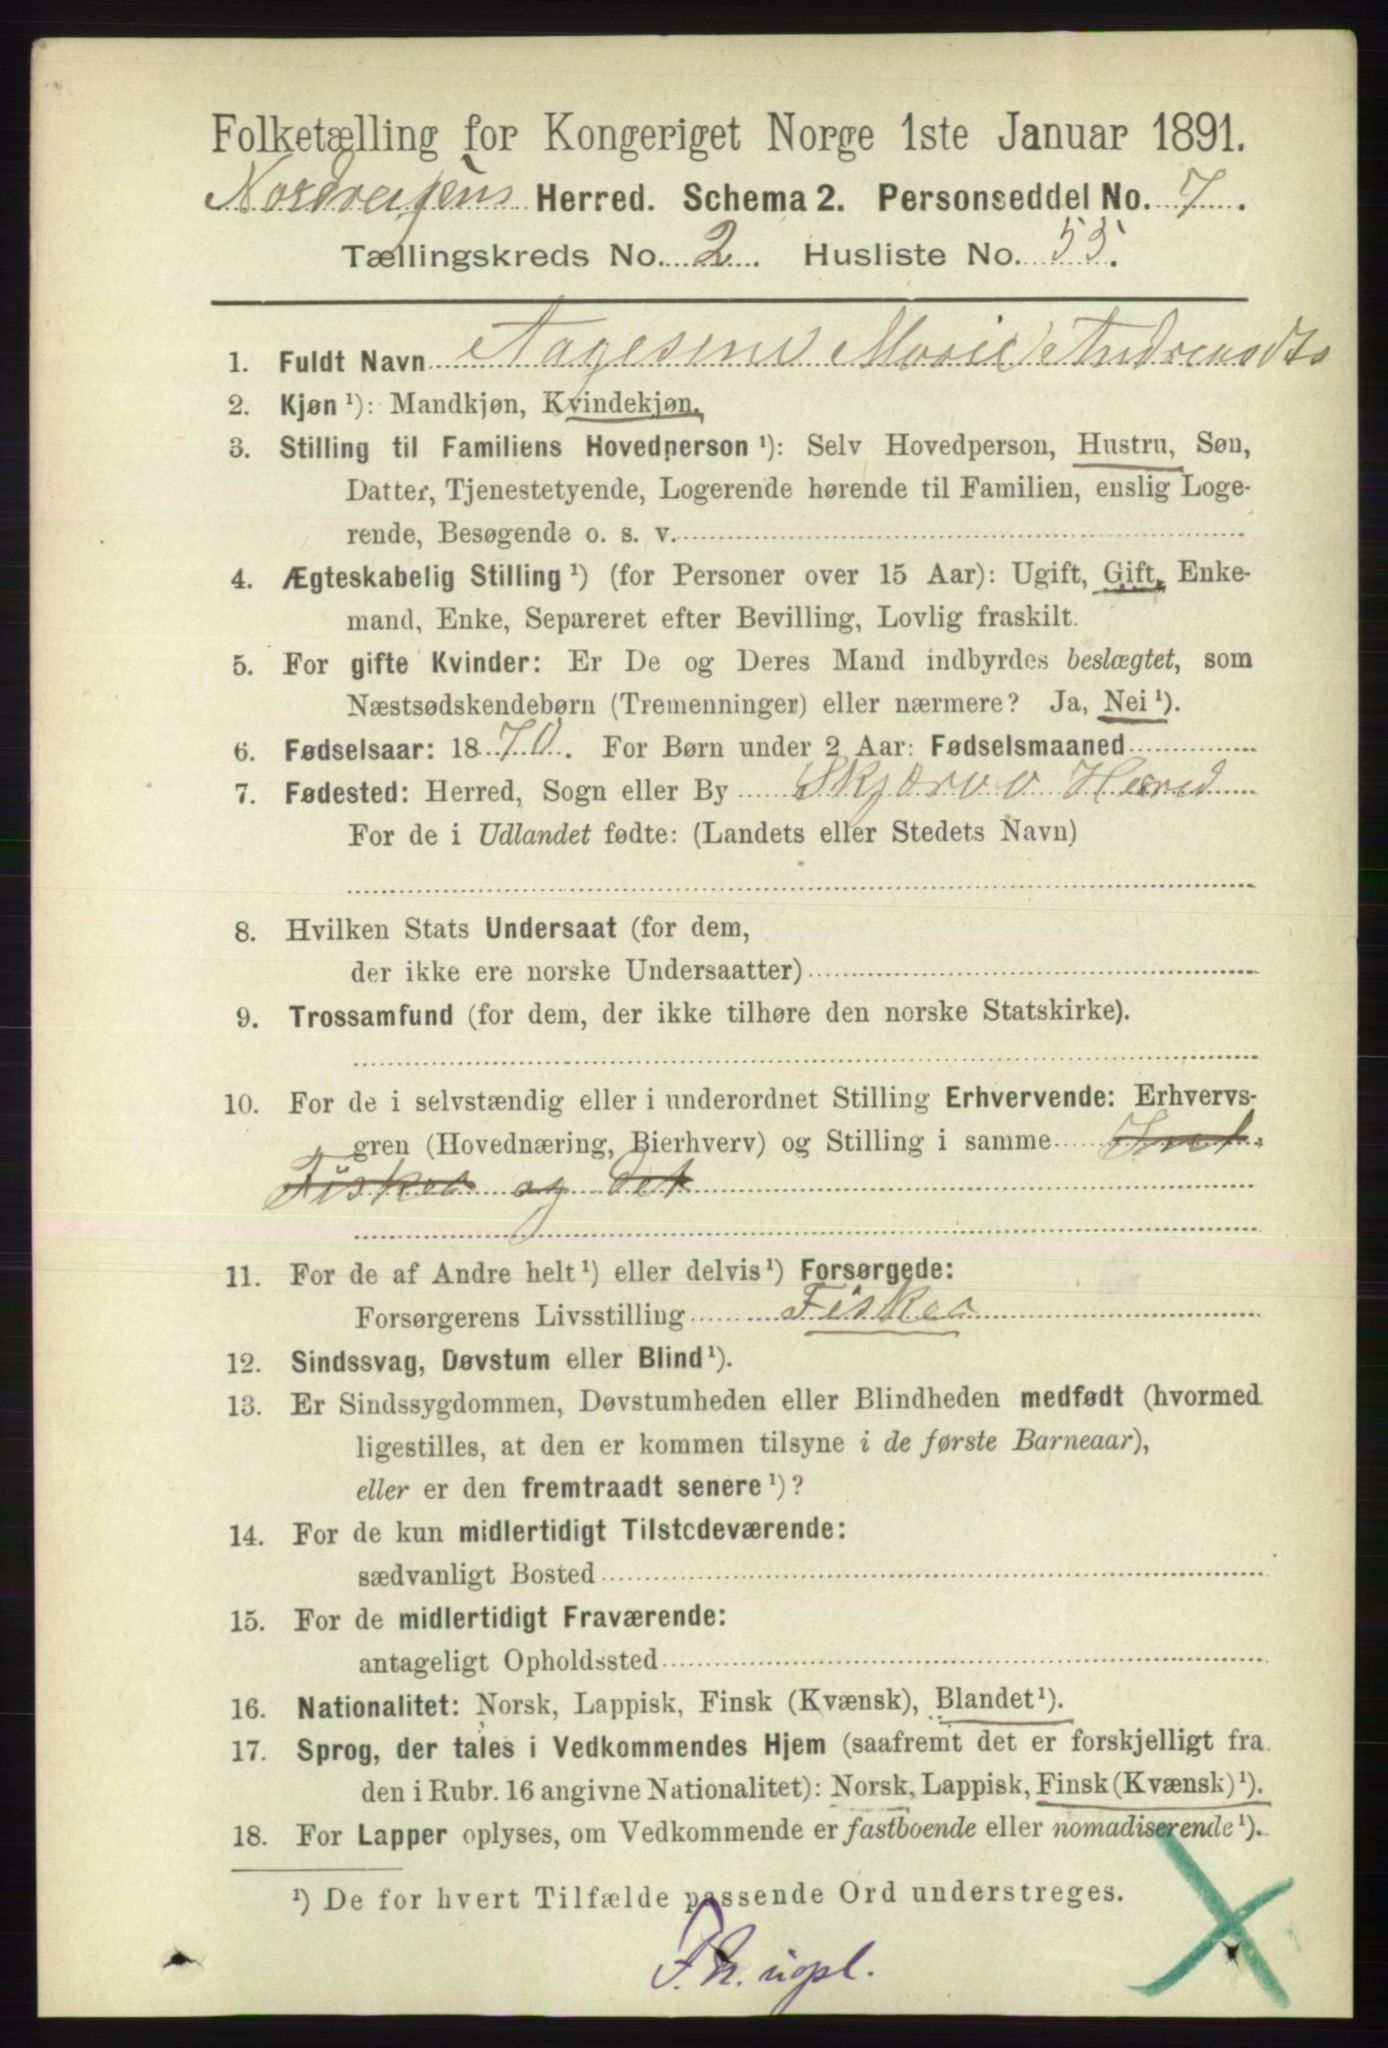 Folketælling for Kongeriget Norge 1ste Januar 1891.
Nordreisens Herred. Schema 2. Personseddel No. 7.
Tællingskreds No. 2. Husliste No. 55.
1. Fuldt Navn Aagesens Marie Andreasdtr
2. Kjøn ¹): Mandkjøn, Kvindekjøn.
3. Stilling til Familiens Hovedperson ¹): Selv Hovedperson, Hustru, Søn,
Datter, Tjenestetyende, Logerende hørende til Familien, enslig Loge-
rende, Besøgende o. s. v.
4. Ægteskabelig Stilling ¹) (for Personer over 15 Aar): Ugift, Gift, Enke-
mand, Enke, Separeret efter Bevilling, Lovlig fraskilt.
5. For gifte Kvinder: Er De og Deres Mand indbyrdes beslægtet, som
Næstsødskendebørn (Tremenninger) eller nærmere? Ja, Nei ¹).
6. Fødselsaar: 1870. For Børn under 2 Aar: Fødselsmaaned
7. Fødested: Herred, Sogn eller By Skjærvø Herred
For de i Udlandet fødte: (Landets eller Stedets Navn)
8. Hvilken Stats Undersaat (for dem,
der ikke ere norske Undersaatter)
9. Trossamfund (for dem, der ikke tilhøre den norske Statskirke).
10. For de i selvstændig eller i underordnet Stilling Erhvervende: Erhvervs-
gren (Hovednæring, Bierhverv) og Stilling i samme
Fisker og det
11. For de af Andre helt ¹) eller delvis ¹) Forsørgede:
Forsørgerens Livsstilling Fisker
12. Sindssvag, Døvstum eller Blind ¹).
13. Er Sindssygdommen, Døvstumheden eller Blindheden medfødt (hvormed
ligestilles, at den er kommen tilsyne i de første Barneaar),
eller er den fremtraadt senere ¹)?
14. For de kun midlertidigt Tilstedeværende:
sædvanligt Bosted
15. For de midlertidigt Fraværende:
antageligt Opholdssted
16. Nationalitet: Norsk, Lappisk, Finsk (Kvænsk), Blandet ¹).
17. Sprog, der tales i Vedkommendes Hjem (saafremt det er forskjelligt fra
den i Rubr. 16 angivne Nationalitet): Norsk, Lappisk, Finsk (Kvænsk) ¹).
18. For Lapper oplyses, om Vedkommende er fastboende eller nomadiserende ¹).
¹) De for hvert Tilfælde passende Ord understreges.